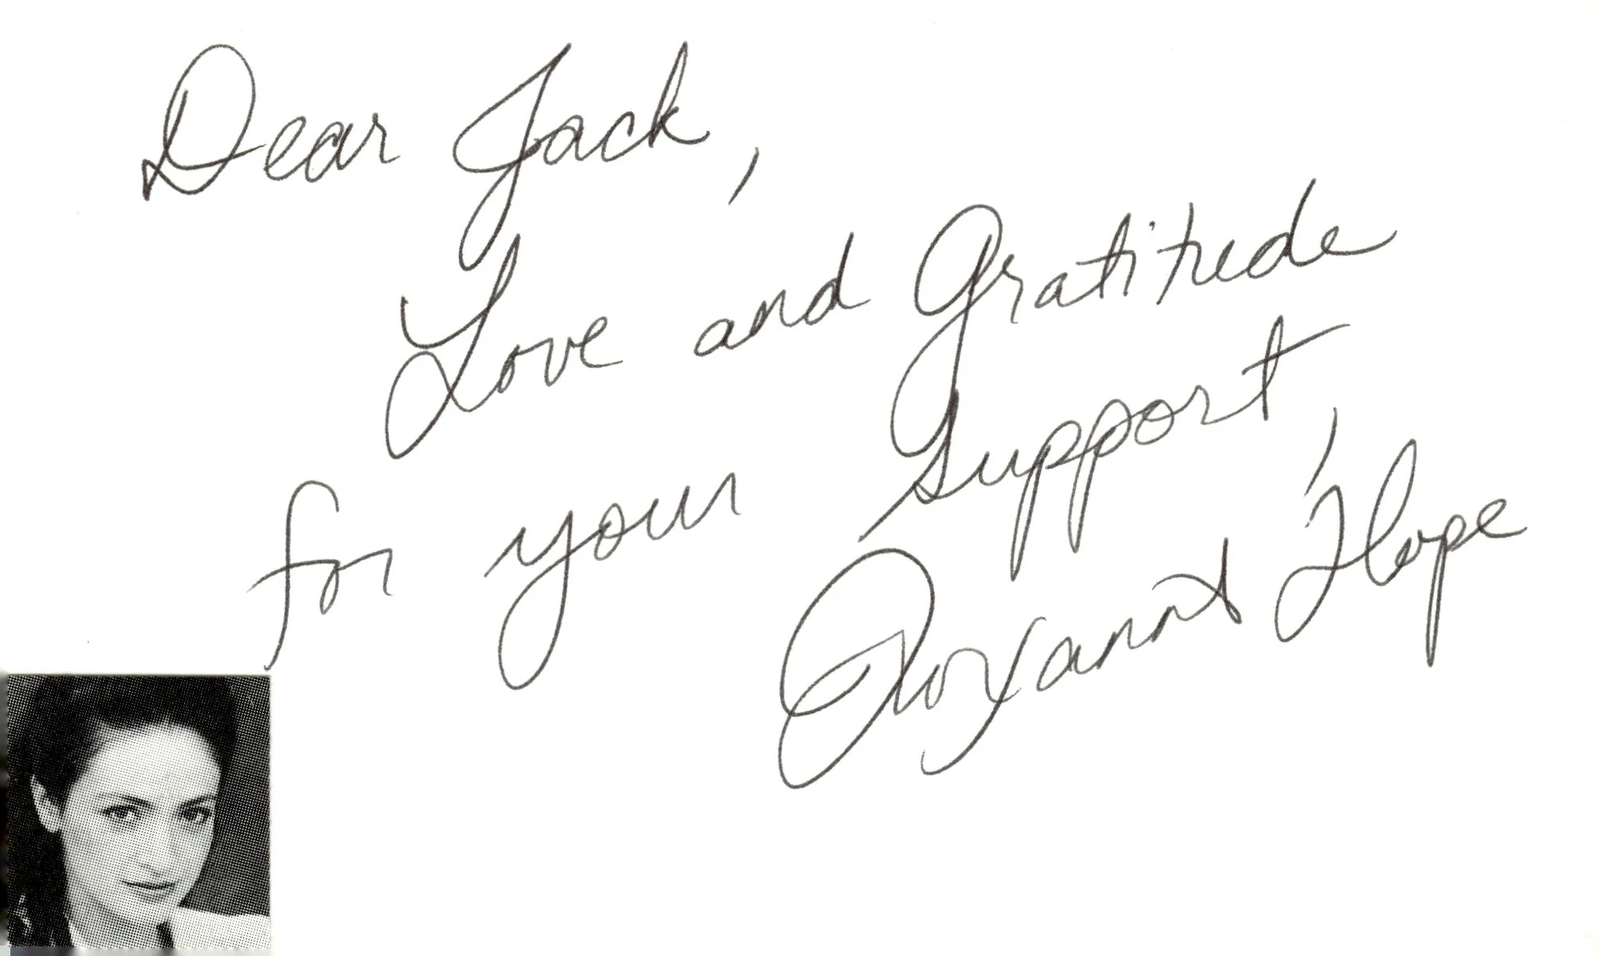 Dear Jack,
Love and Gratitude
for your support,
Roxann Hope